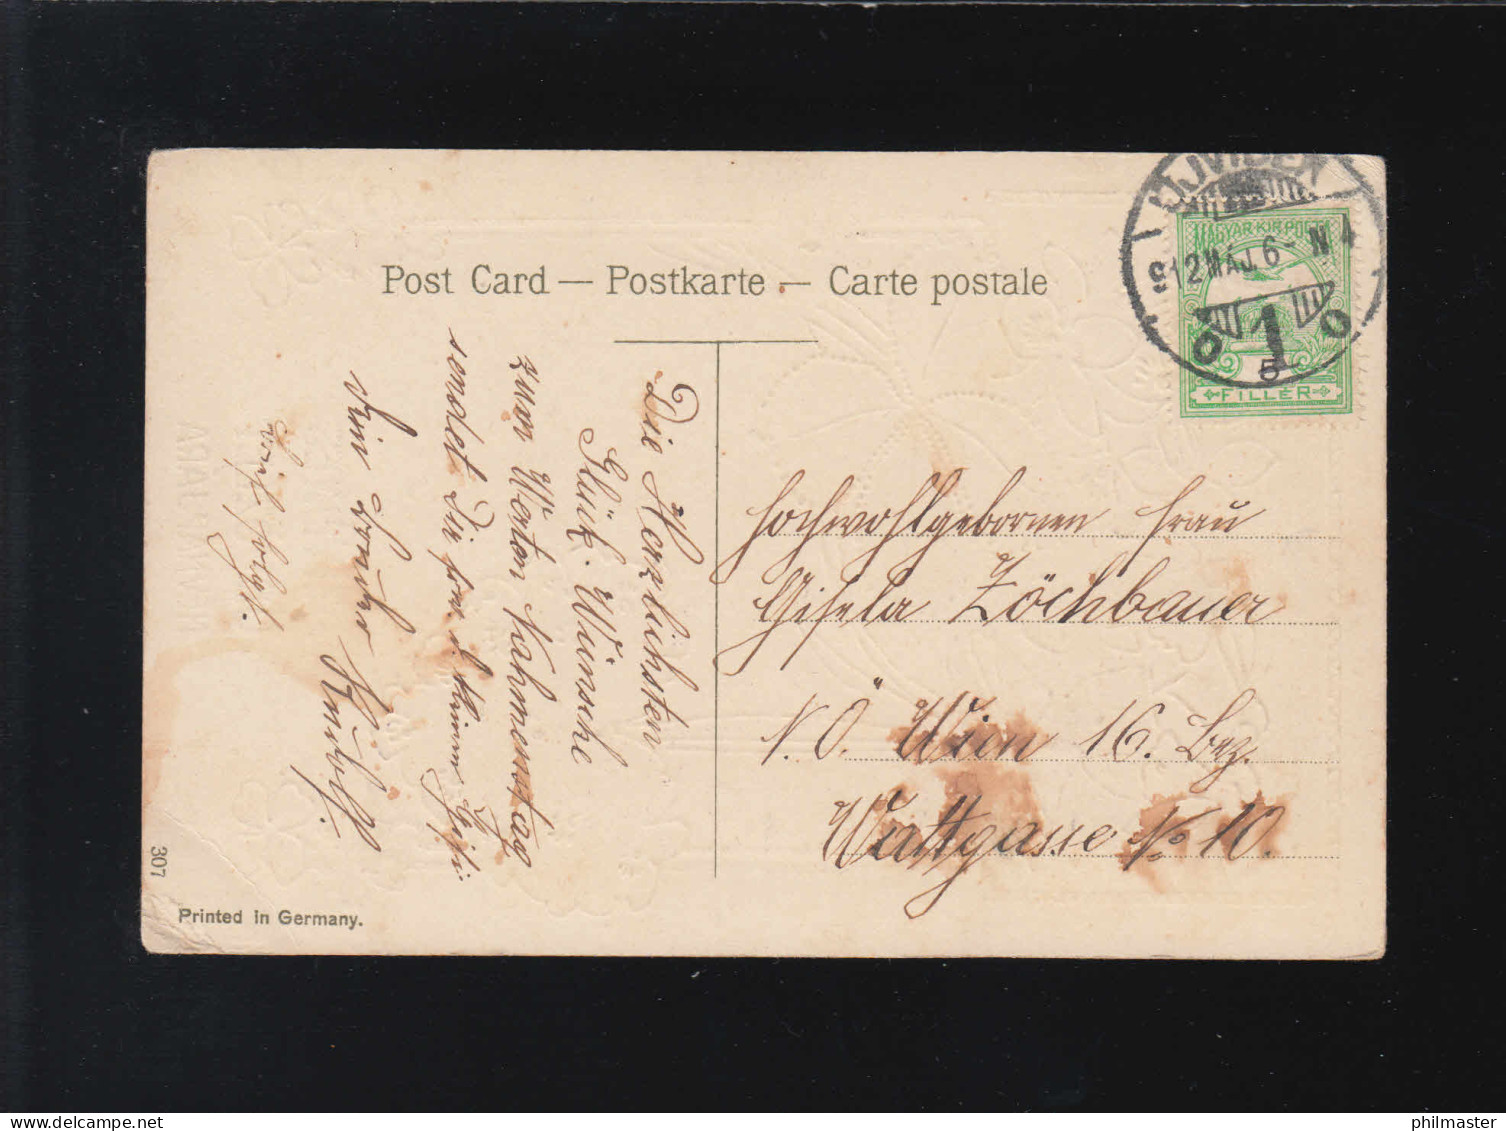 Post Card — Postkarte — Carte postale
UJVIDEK
912 MÁJ. 6 - N 4
1
MAGYAR·KIR·POSTA
5
FILLÉR
Die Herzlichsten
Glück. Wünsche
zum Werten Nahmenstag
sendet Dir
Dein
Brief folgt.
Hochwohlgebornen Frau
Gisela Zöchbauer
N.Ö. Wien 16. Bez.
Wattgasse No 10.
307
Printed in Germany.
philmaster